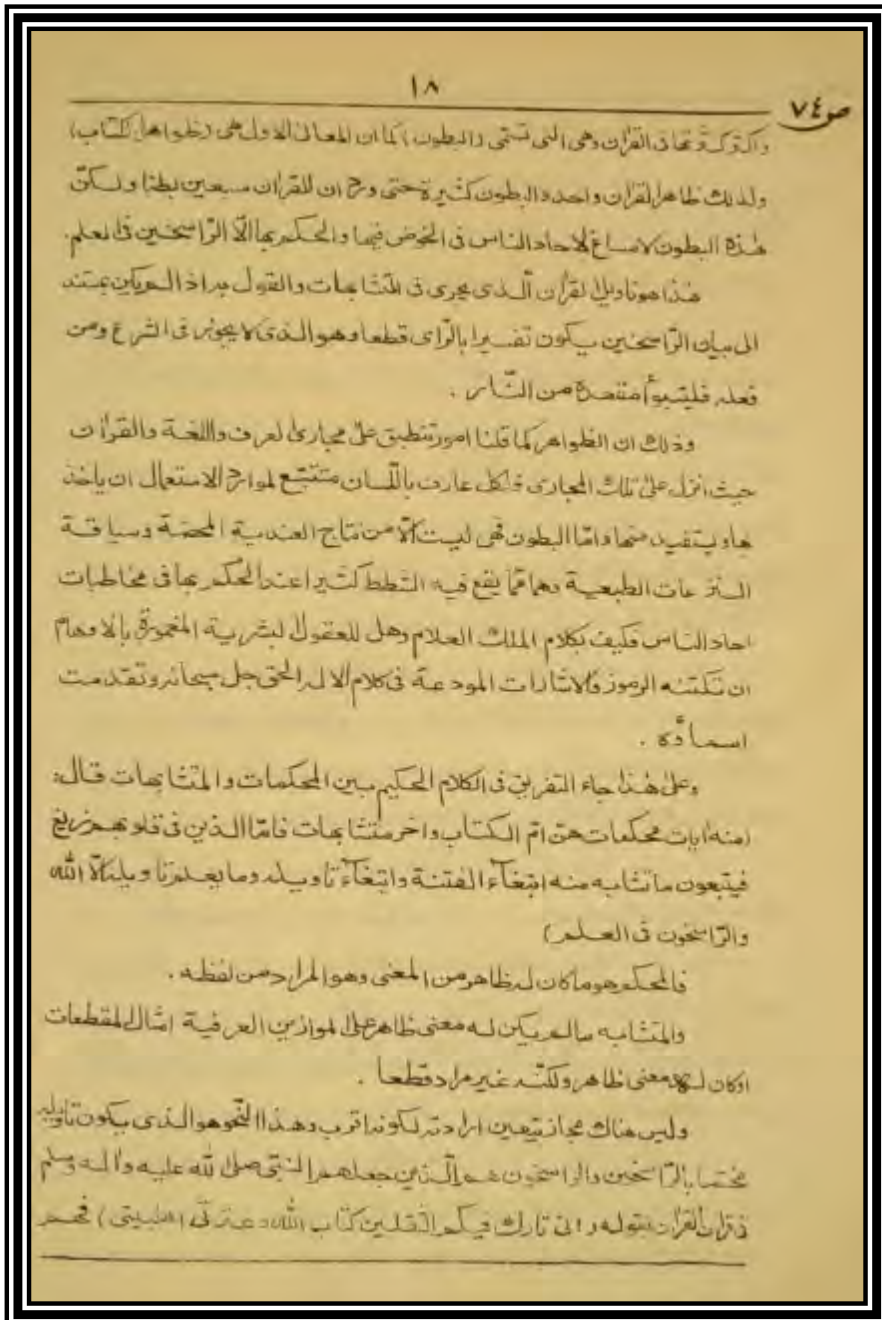 ١٨
ص٧٤
القرآن وهى التى تسمّى (البطون) كما ان المعانى الاول هى (ظواهر الكتاب)
ولذلك ظاهر القرآن واحد والبطون كثيرة حتى ورد ان للقرآن سبعين بطنا ولكنّ
هذه البطون لامساغ لاحاد الناس فى الخوض فيها والحكم بها الّا الرّاسخين فى العلم.
هذا هو تاويل القرآن الّذى يجرى فى المتشابهات والقول به اذا لم يكن يستند
الى بيان الرّاسخين يكون تفسيرا بالرّاى قطعا وهو الذى لا يجوز فى الشرع ومن
فعله فليتبوأ مقعده من النّار .
وذلك ان الظواهر كما قلنا امور تنطبق على مجارى العرف واللغة والقرآن
حيث انزل على تلك المجارى فلكل عارف باللّسان متتبّع لموارد الاستعمال ان ياخذ
بها ويستفيد منها وامّا البطون فهى ليست الّا من نتاج العندية المحضة وسياقة
النزعات الطبعية وهما ممّا يقع فيه الشطط كثيرا عند الحكم بها فى مخاطبات
احاد النّاس فكيف بكلام الملك العلام وهل للعقول البشرية المغمورة بالاوهام
ان تكتنه الرموز والاشارات المودعة فى كلام الاله الحق جل سبحانه وتقدست
اسماؤه .
وعلى هذا جاء التفريق فى الكلام الحكيم بين المحكمات والمتشابهات قال:
(منه آيات محكمات هنّ امّ الكتاب واخر متشابهات فامّا الذين فى قلوبهم زيغ
فيتبعون ما تشابه منه ابتغآء الفتنة وابتغآء تاويله وما يعلم تاويله الّا الله
والرّاسخون فى العلم)
فالمحكم هو ما كان له ظاهر من المعنى وهو المراد من لفظه .
والمتشابه مالم يكن له معنى ظاهر على الموازين العرفية امثال المقطعات
اوكان له معنى ظاهر ولكنّه غير مراد قطعا .
وليس هناك مجاز يتعين ارادته لكونه اقرب وهذا النّحو هو الذى يكون تاويله
مختصا بالرّاسخين والراسخون هم الّذين جعلهم النّبى صلى الله عليه وآله وسلم
القرآن بقوله (انى تارك فيكم الثّقلين كتاب الله وعترتى اهلبيتى) فهم